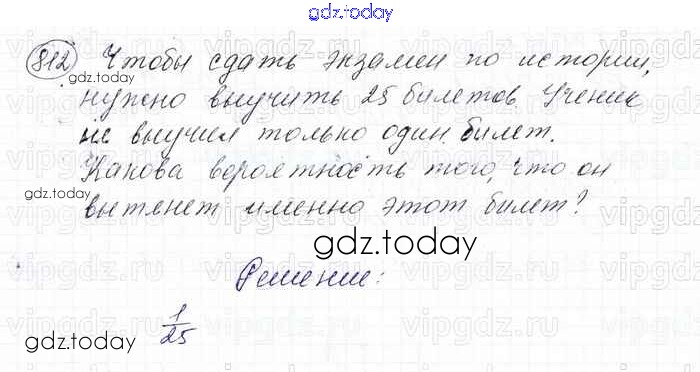 gdz.today
812 Чтобы сдать экзамен по истории,
gdz.today
нужно выучить 25 билетов. Ученик
не выучил только один билет.
Какова вероятность того, что он
gdz.today
вытянет именно этот билет?
gdz.today
Решение:
1/25
gdz.today